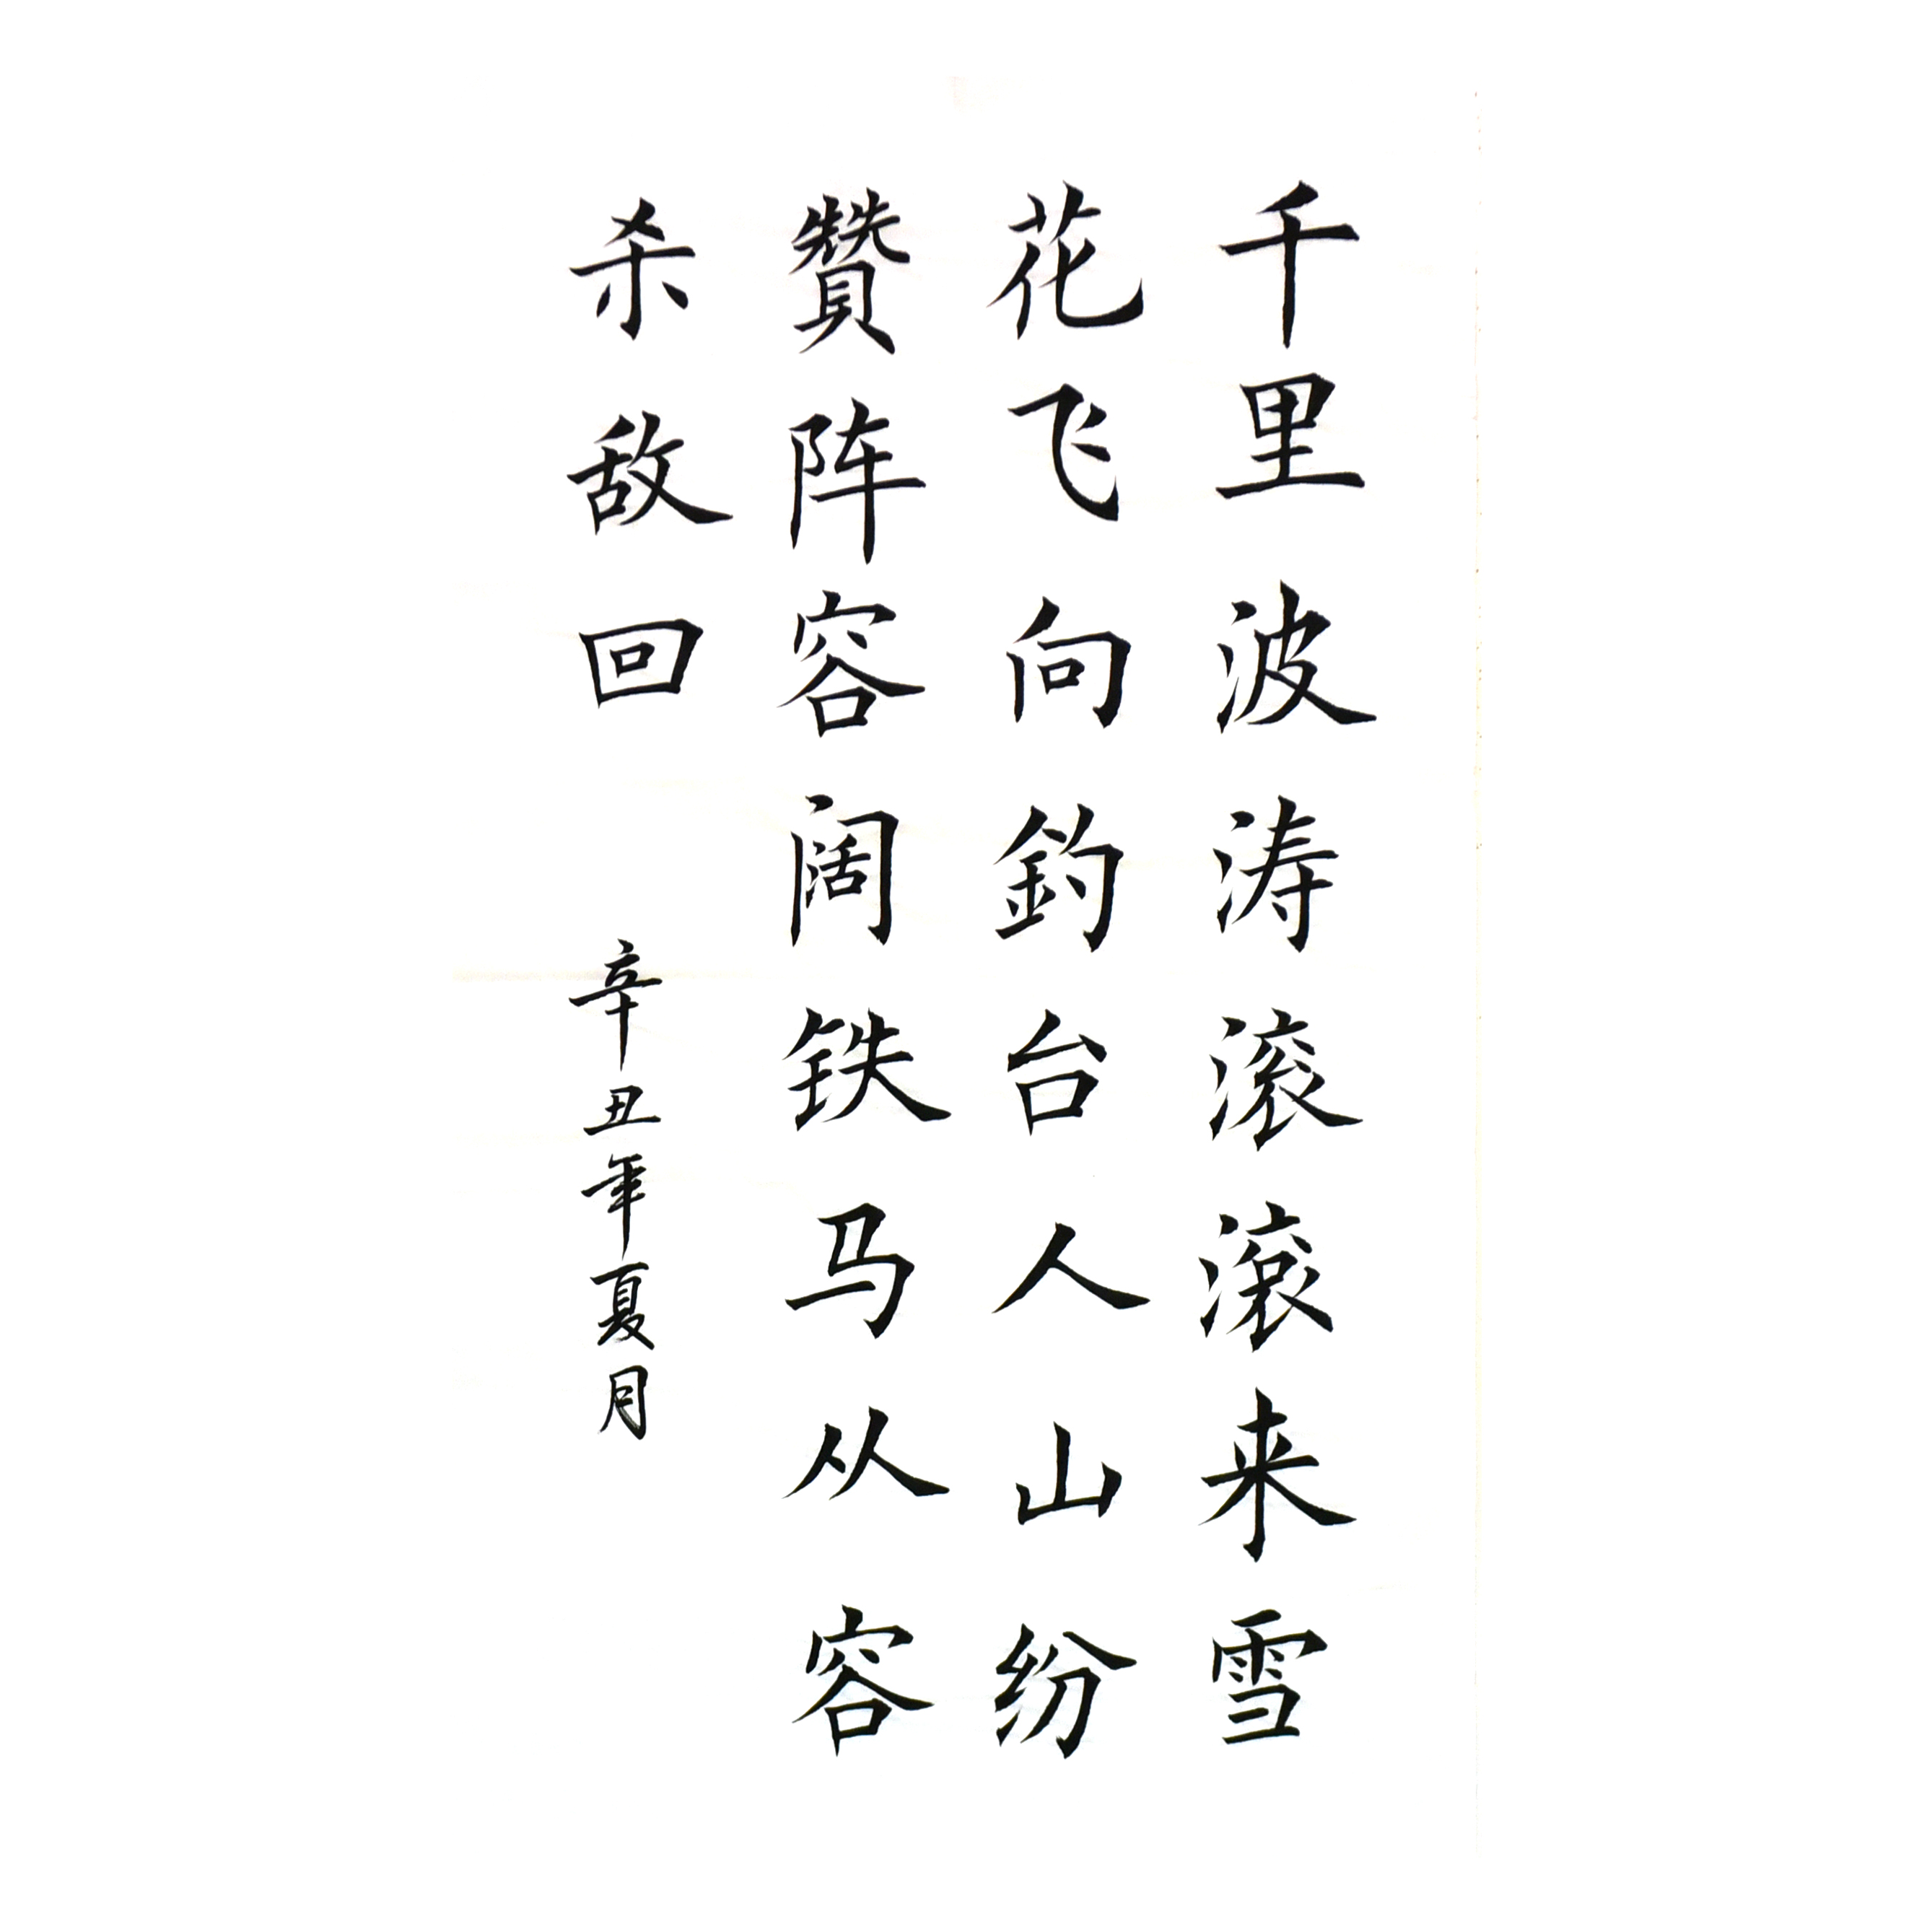 千里波涛滚滚来雪
花飞向釣台人山纷
赞阵容阔铁马从容
杀敌回
辛丑年夏月